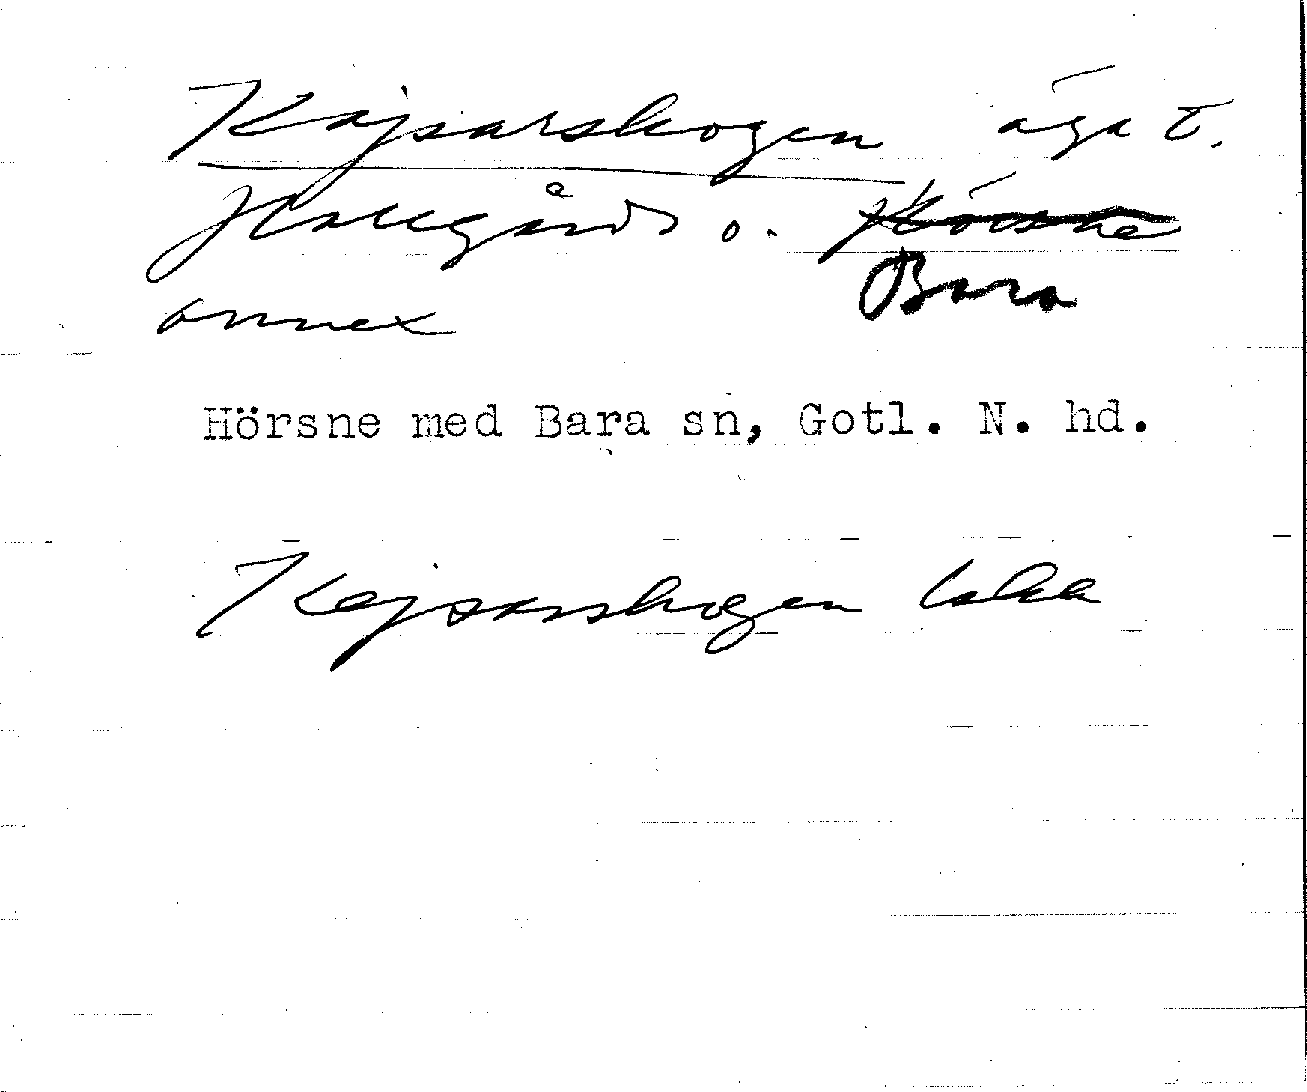 Kajsarskogen äga t.
Hallegårds o. Hörsne
Bara
annex
Hörsne med Bara sn, Gotl. N. hd.
Kejsarskogen